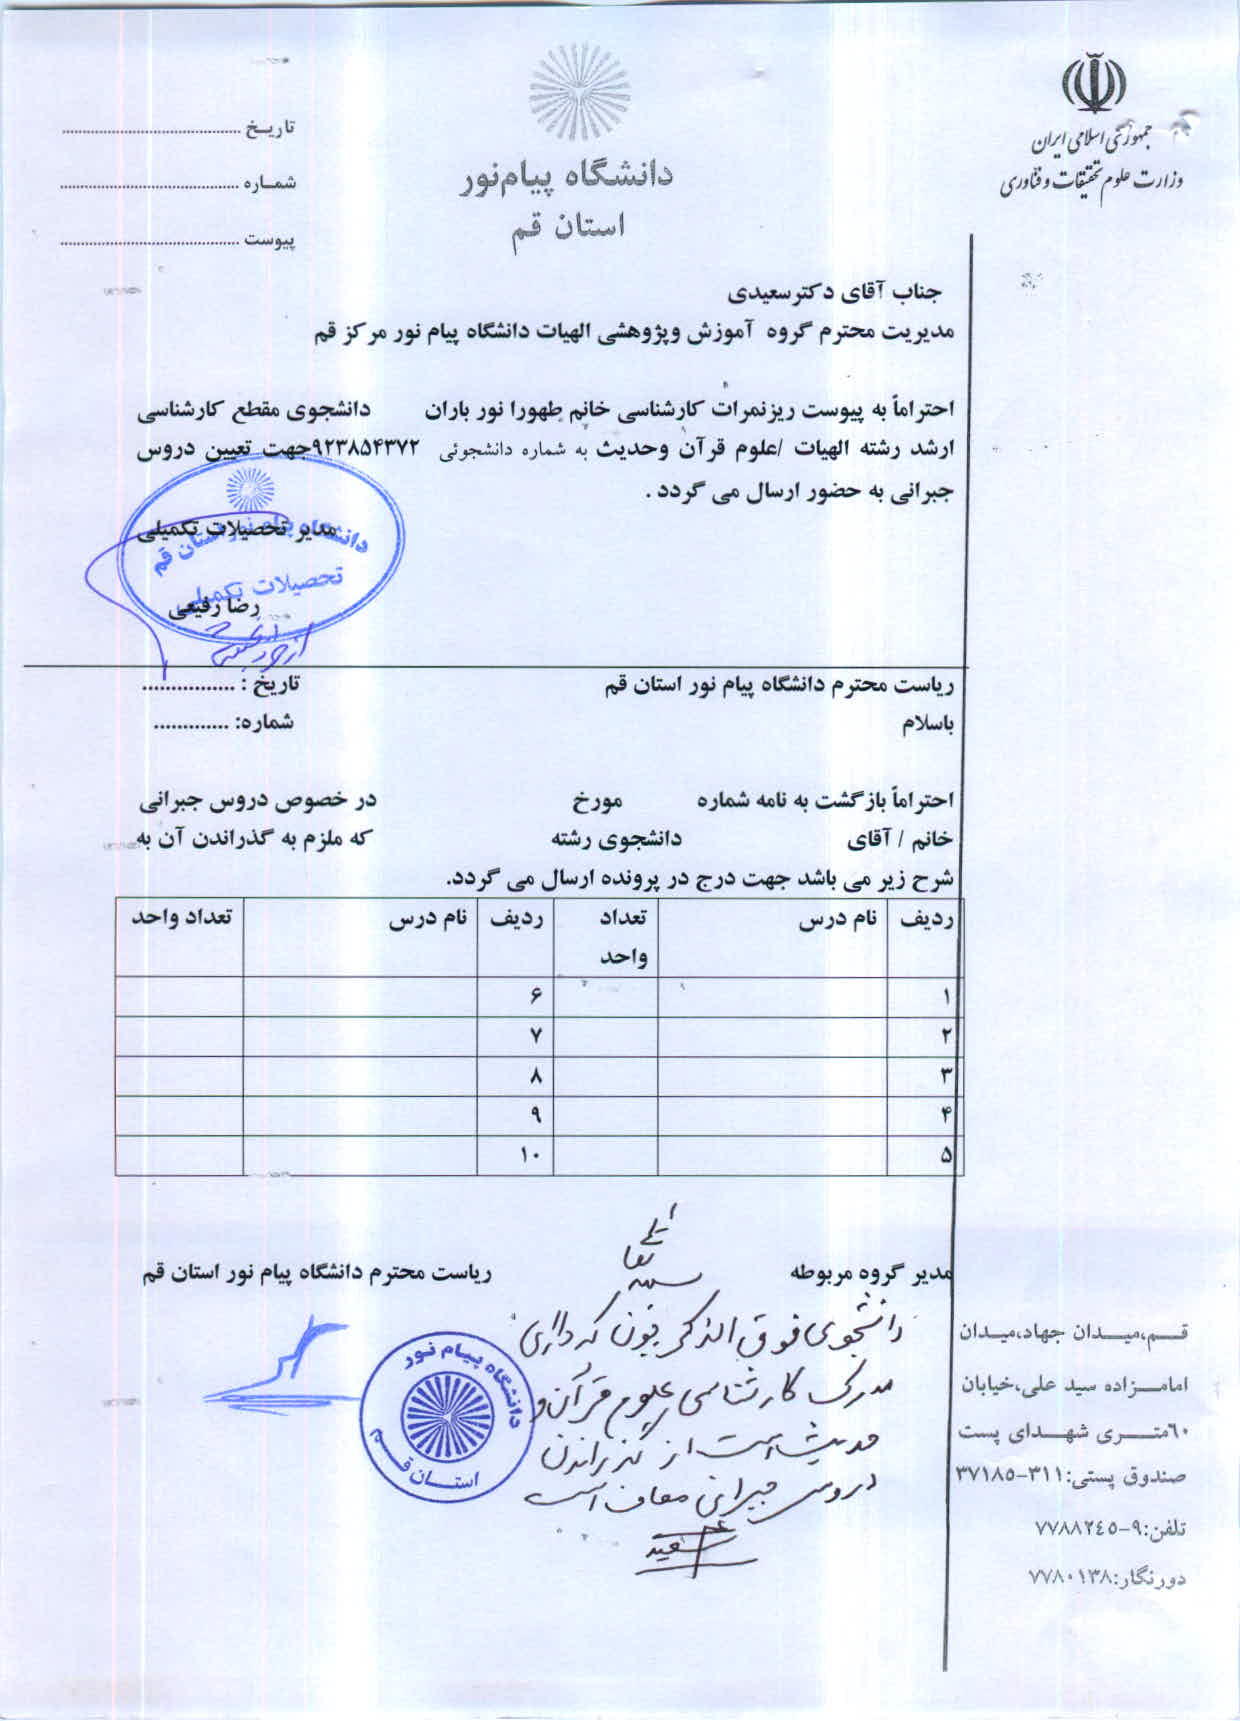 جمهوری اسلامی ایران
وزارت علوم تحقیقات و فناوری
دانشگاه پیام‌نور
استان قم
تاریخ ........................................
شماره ........................................
پیوست ........................................
جناب آقای دکترسعیدی
مدیریت محترم گروه آموزش وپژوهشی الهیات دانشگاه پیام نور مرکز قم
احتراماً به پیوست ریزنمرات کارشناسی خانم طهورا نور باران دانشجوی مقطع کارشناسی
ارشد رشته الهیات /علوم قرآن وحدیث به شماره دانشجوئی ۹۲۳۸۵۴۳۷۲جهت تعیین دروس
جبرانی به حضور ارسال می گردد .
مدیر تحصیلات تکمیلی
دانشگاه پیام نور استان قم
تحصیلات تکمیلی
رضا رفیعی
ریاست محترم دانشگاه پیام نور استان قم
تاریخ : ................
باسلام
شماره: .............
احتراماً بازگشت به نامه شماره مورخ در خصوص دروس جبرانی
خانم / آقای دانشجوی رشته که ملزم به گذراندن آن به
شرح زیر می باشد جهت درج در پرونده ارسال می گردد.
ردیف نام درس تعداد واحد ردیف نام درس تعداد واحد
۱ ۶
۲ ۷
۳ ۸
۴ ۹
۵ ۱۰
مدیر گروه مربوطه
ریاست محترم دانشگاه پیام نور استان قم
دانشجوی فوق الذکر چون که دارای
مدرک کارشناسی علوم قرآن و
حدیث است از گذراندن
دروس جبرانی معاف است
سعیدی
دانشگاه پیام نور
استان قم
قم،میدان جهاد،میدان
امامزاده سید علی،خیابان
٦۰متری شهدای پست
صندوق پستی:۳۱۱-۳۷۱۸٥
تلفن:۹-۷۷۸۸۲٤٥
دورنگار:۷۷۸۰۱۳۸